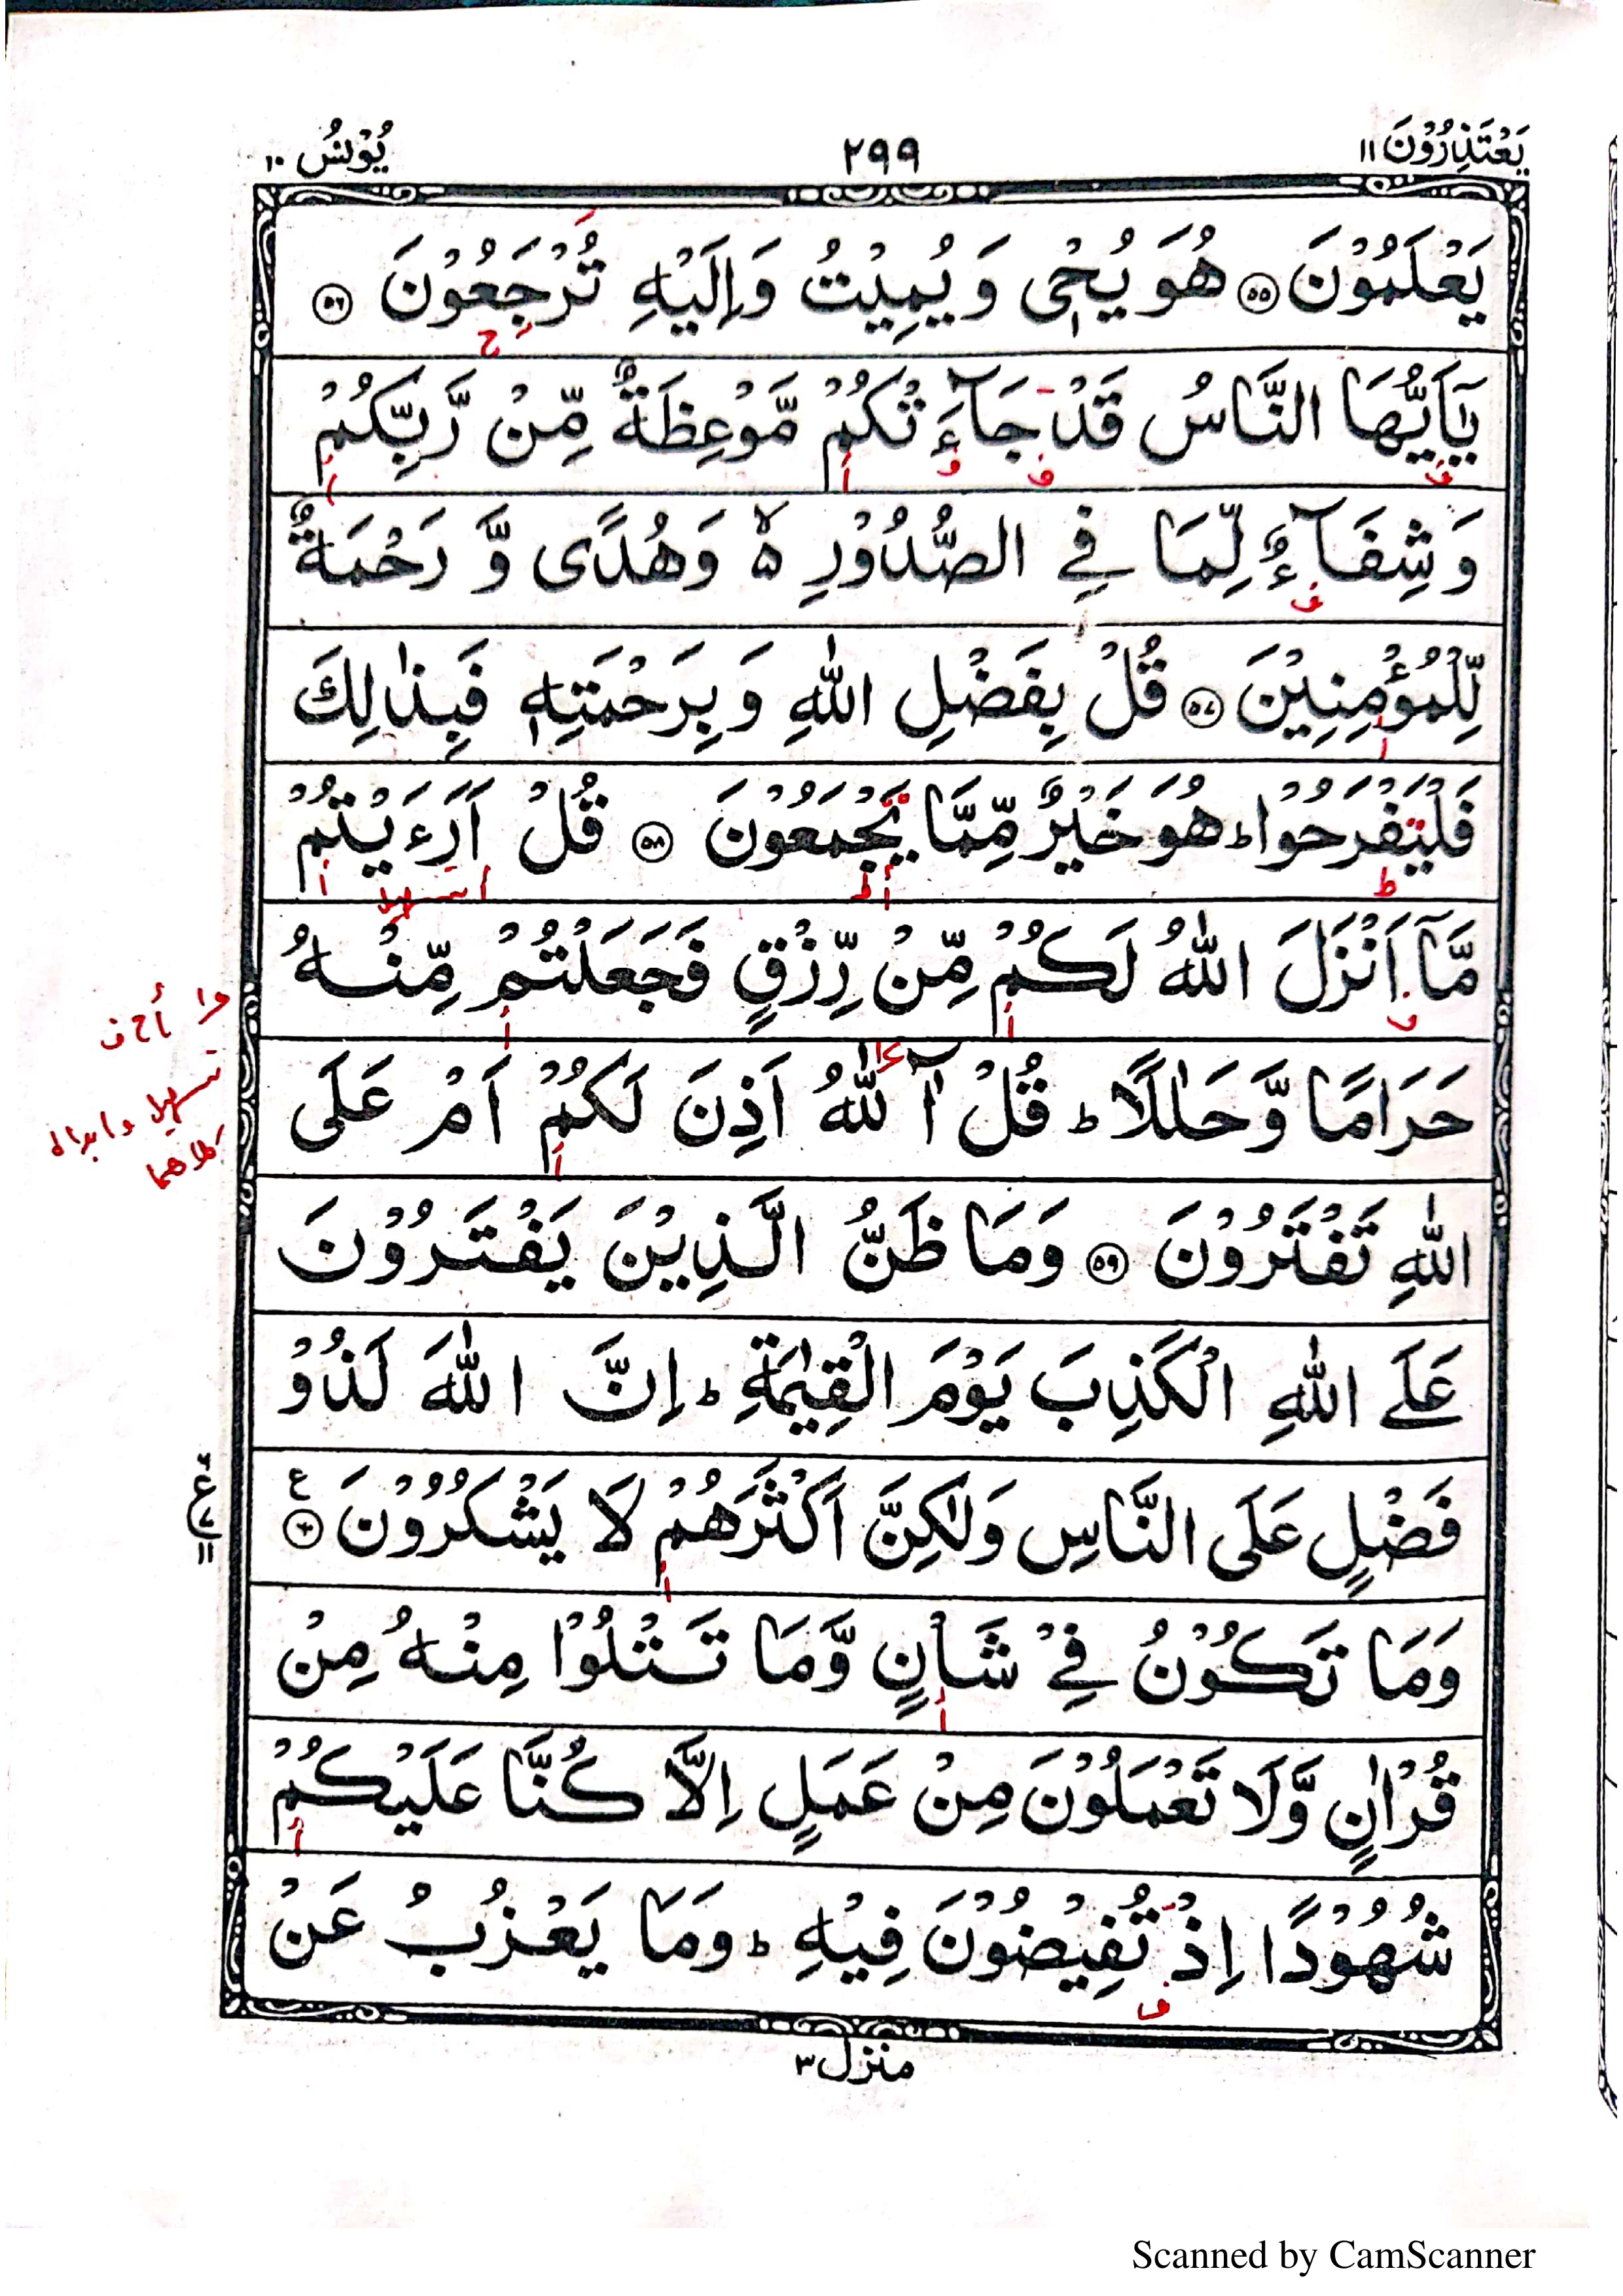 يَعْتَذِرُوْنَ ١١
٢٩٩
يُوْنُسُ ١٠
يَعْلَمُوْنَ ۝٥٥ هُوَ يُحْىٖ وَ يُمِيْتُ وَ اِلَيْهِ تُرْجَعُوْنَ ۝٥٦
يٰٓاَيُّهَا النَّاسُ قَدْ جَآءَتْكُمْ مَّوْعِظَةٌ مِّنْ رَّبِّكُمْ
وَ شِفَآءٌ لِّمَا فِي الصُّدُوْرِ ۵ وَ هُدًى وَّ رَحْمَةٌ
لِّلْمُؤْمِنِيْنَ ۝٥٧ قُلْ بِفَضْلِ اللّٰهِ وَ بِرَحْمَتِهٖ فَبِذٰلِكَ
فَلْيَفْرَحُوْا ؕ هُوَ خَيْرٌ مِّمَّا يَجْمَعُوْنَ ۝٥٨ قُلْ اَرَءَيْتُمْ
مَّآ اَنْزَلَ اللّٰهُ لَكُمْ مِّنْ رِّزْقٍ فَجَعَلْتُمْ مِّنْهُ
حَرَامًا وَّ حَلٰلًا ؕ قُلْ آٰللّٰهُ اَذِنَ لَكُمْ اَمْ عَلَى
اللّٰهِ تَفْتَرُوْنَ ۝٥٩ وَ مَا ظَنُّ الَّذِيْنَ يَفْتَرُوْنَ
عَلَى اللّٰهِ الْكَذِبَ يَوْمَ الْقِيٰمَةِ ؕ اِنَّ اللّٰهَ لَذُوْ
فَضْلٍ عَلَى النَّاسِ وَلٰكِنَّ اَكْثَرَهُمْ لَا يَشْكُرُوْنَ ۝٦٠ ع
وَ مَا تَكُوْنُ فِيْ شَاْنٍ وَّ مَا تَتْلُوْا مِنْهُ مِنْ
قُرْاٰنٍ وَّ لَا تَعْمَلُوْنَ مِنْ عَمَلٍ اِلَّا كُنَّا عَلَيْكُمْ
شُهُوْدًا اِذْ تُفِيْضُوْنَ فِيْهِ ؕ وَ مَا يَعْزُبُ عَنْ
تسهيل وابدال
كلاهما
منزل ٣
Scanned by CamScanner